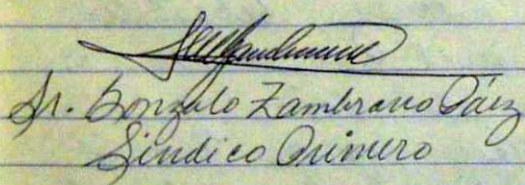 Sr. Gonzalo Zambrano Páez
Síndico Primero